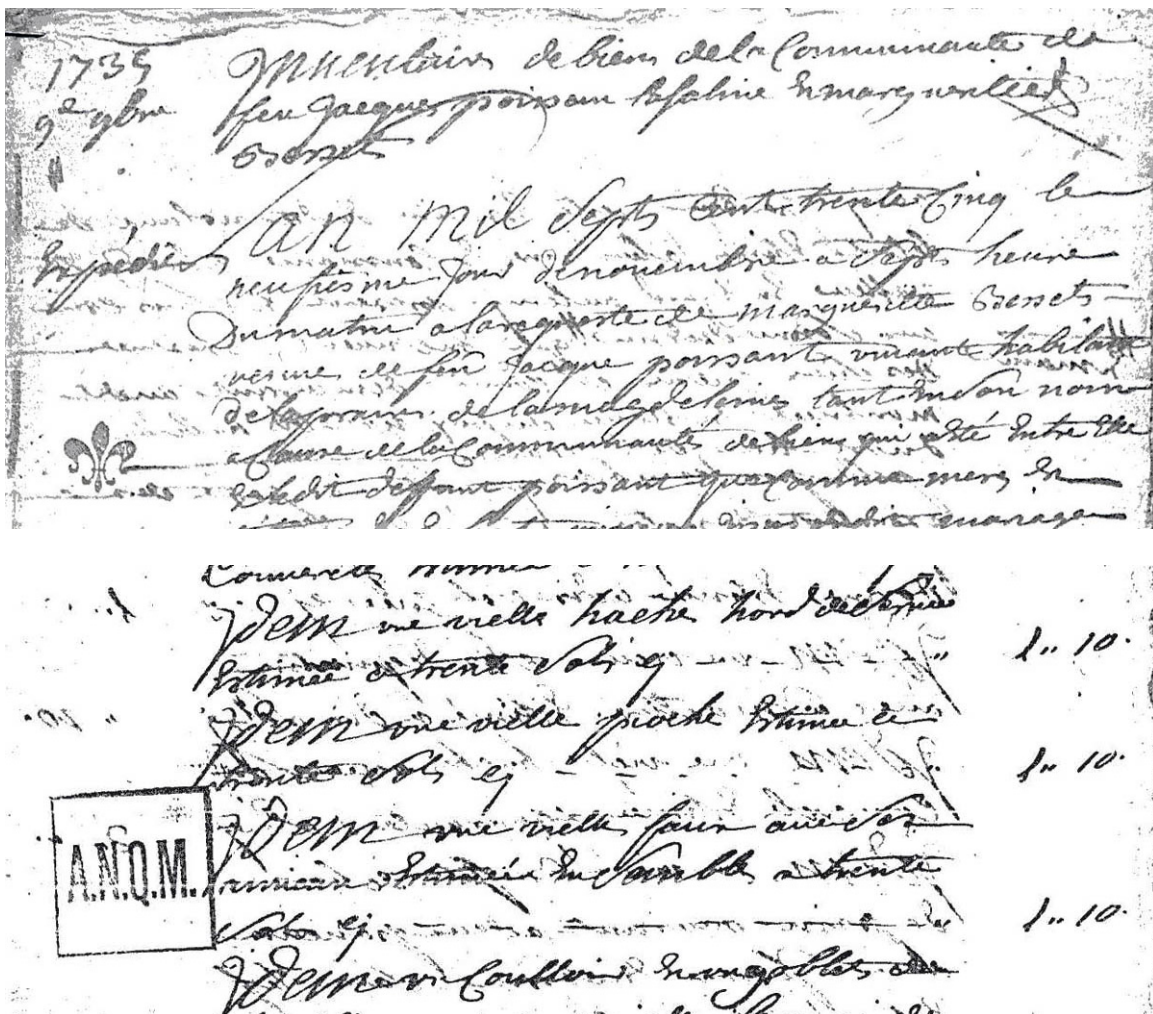 1735
9e 9bre
"
Inventaire de biens dela Communauté de
feu Jacques poissan Lasaline & marguerite
Besset
Expédiée
L'an Mil Septs Cent trente Cinq le
neufiesme Jour de novembre a Septs heure
Du matin a la requeste de Marguerite Bessets
veuve de feu Jacque poissant vivant habitant
De la prairie de la magdelaine tant En Son nom
a Cause de la Communauté de biens qui a été Entre Elle
Et ledit deffunt poissant que Comme mere Et
mariage
Couvercle Estimée
Idem une vielle hache hord de Service
Estimée a trente Sols cy " 1 " 10.
Idem une vielle pioche Estimée a
trente Sols cy 1 " 10.
Idem une vielle faux avec Son
Estimée Ensemble a trente
Sols cy " 1 " 10.
Idem un Coulloir un goblet de
A.N.Q.M.